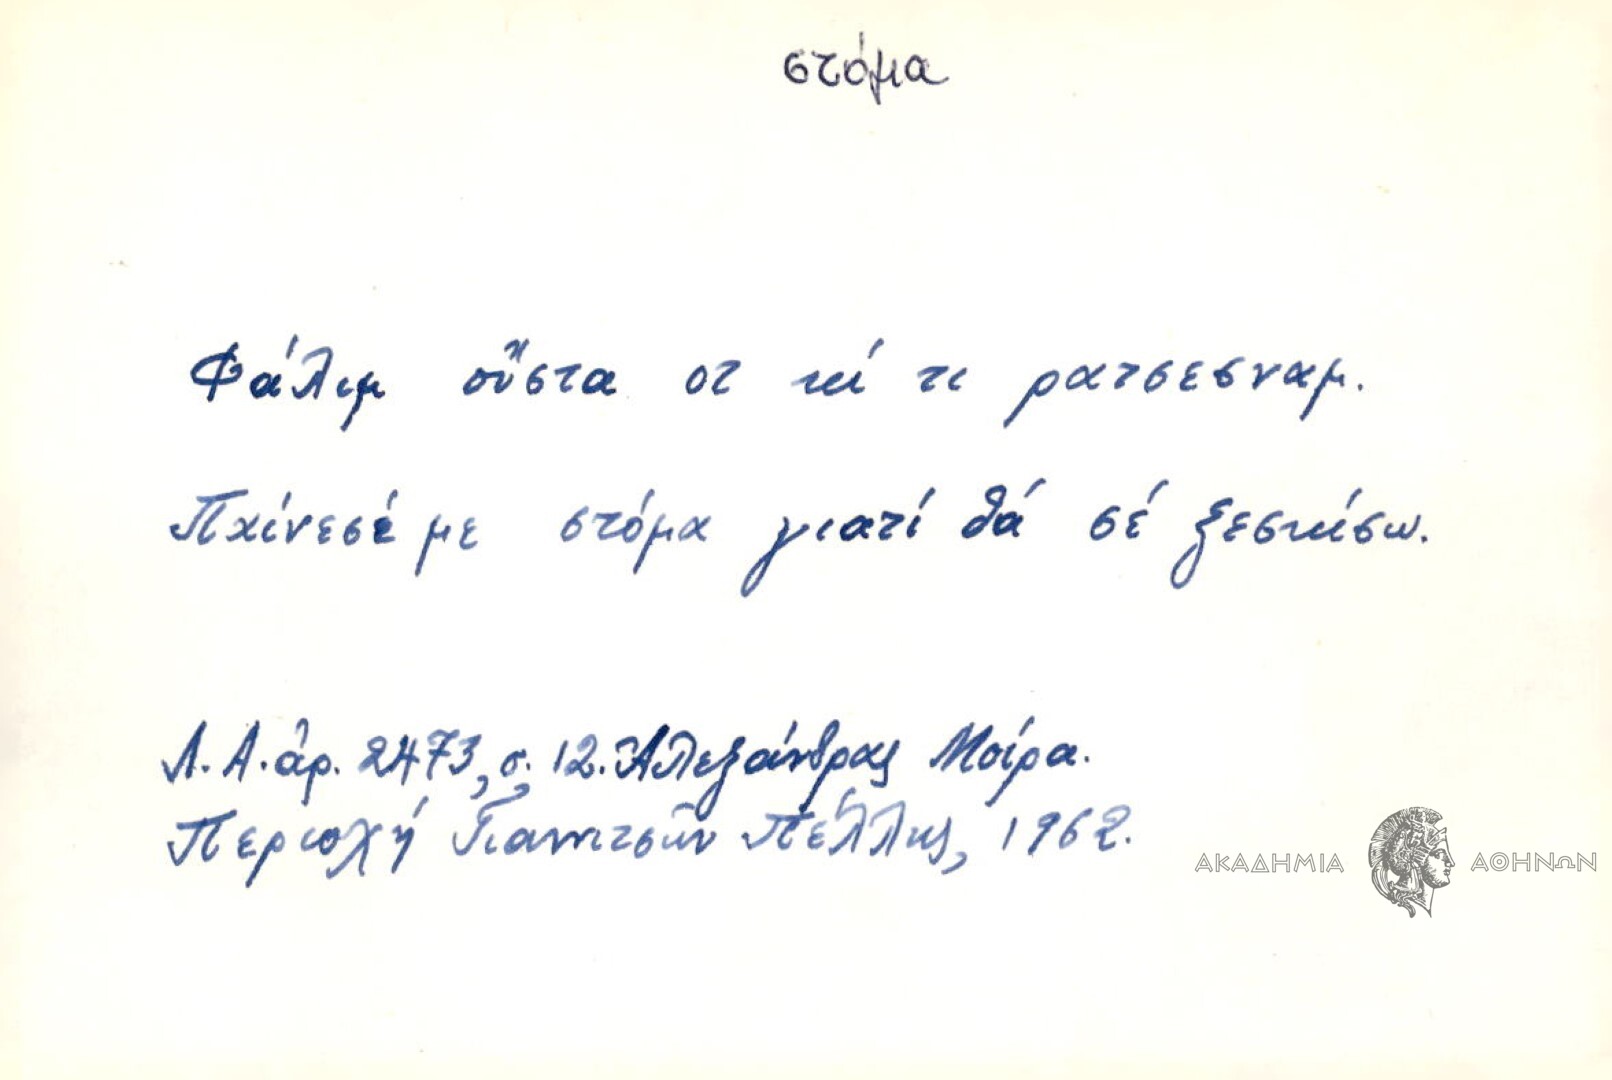 στόμα
Φάλιμ οὔστα οτ κί τι ρατσεσναμ.
Παίνεσέ με στόμα γιατί θά σέ ξεσκίσω.
Λ. Α. ἀρ. 2473, σ. 12. Ἀλεξάνδρας Μοίρα.
Περιοχή Γιαννιτσῶν Πέλλης, 1962.
ΑΚΑΔΗΜΙΑ ΑΘΗΝΩΝ